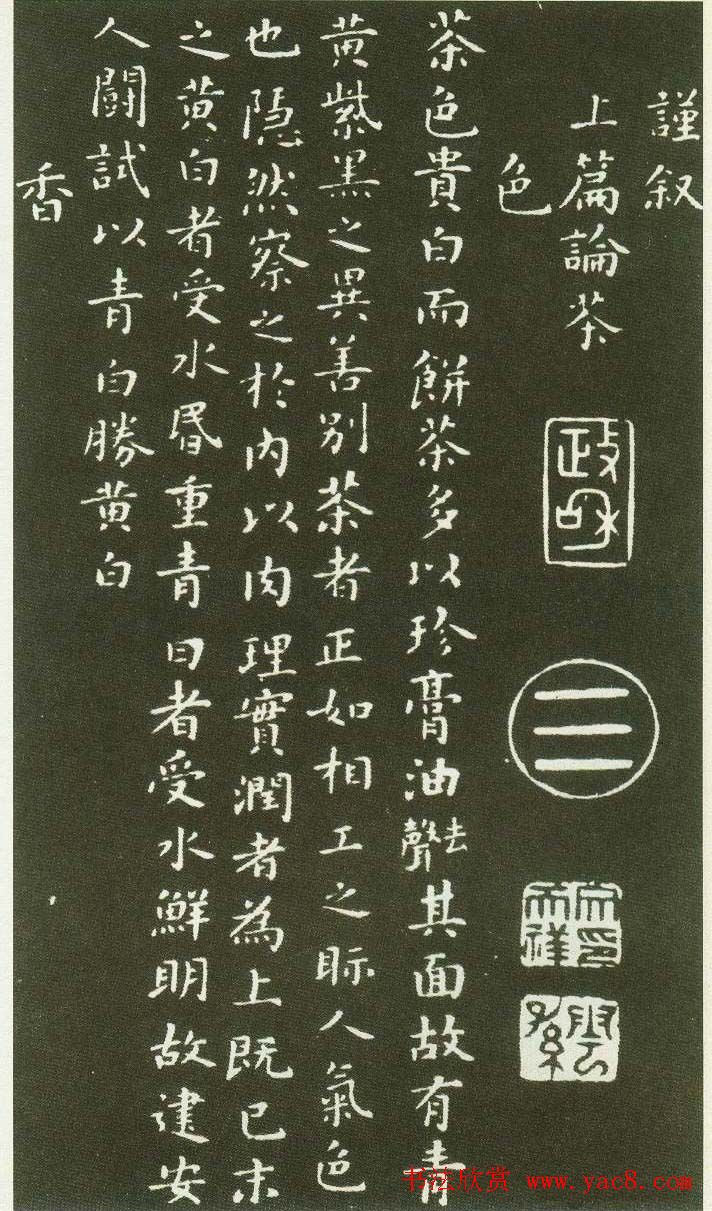 謹叙
上篇論茶
色
政和
茶色貴白而餅茶多以珍膏油去聲其面故有青
黄紫黑之異善别茶者正如相工之眎人氣色
也隱然察之於内以肉理實潤者為上既已末
之黄白者受水昬重青白者受水鮮明故建安
人鬬試以青白勝黄白
香
书法欣赏 www.yac8.com